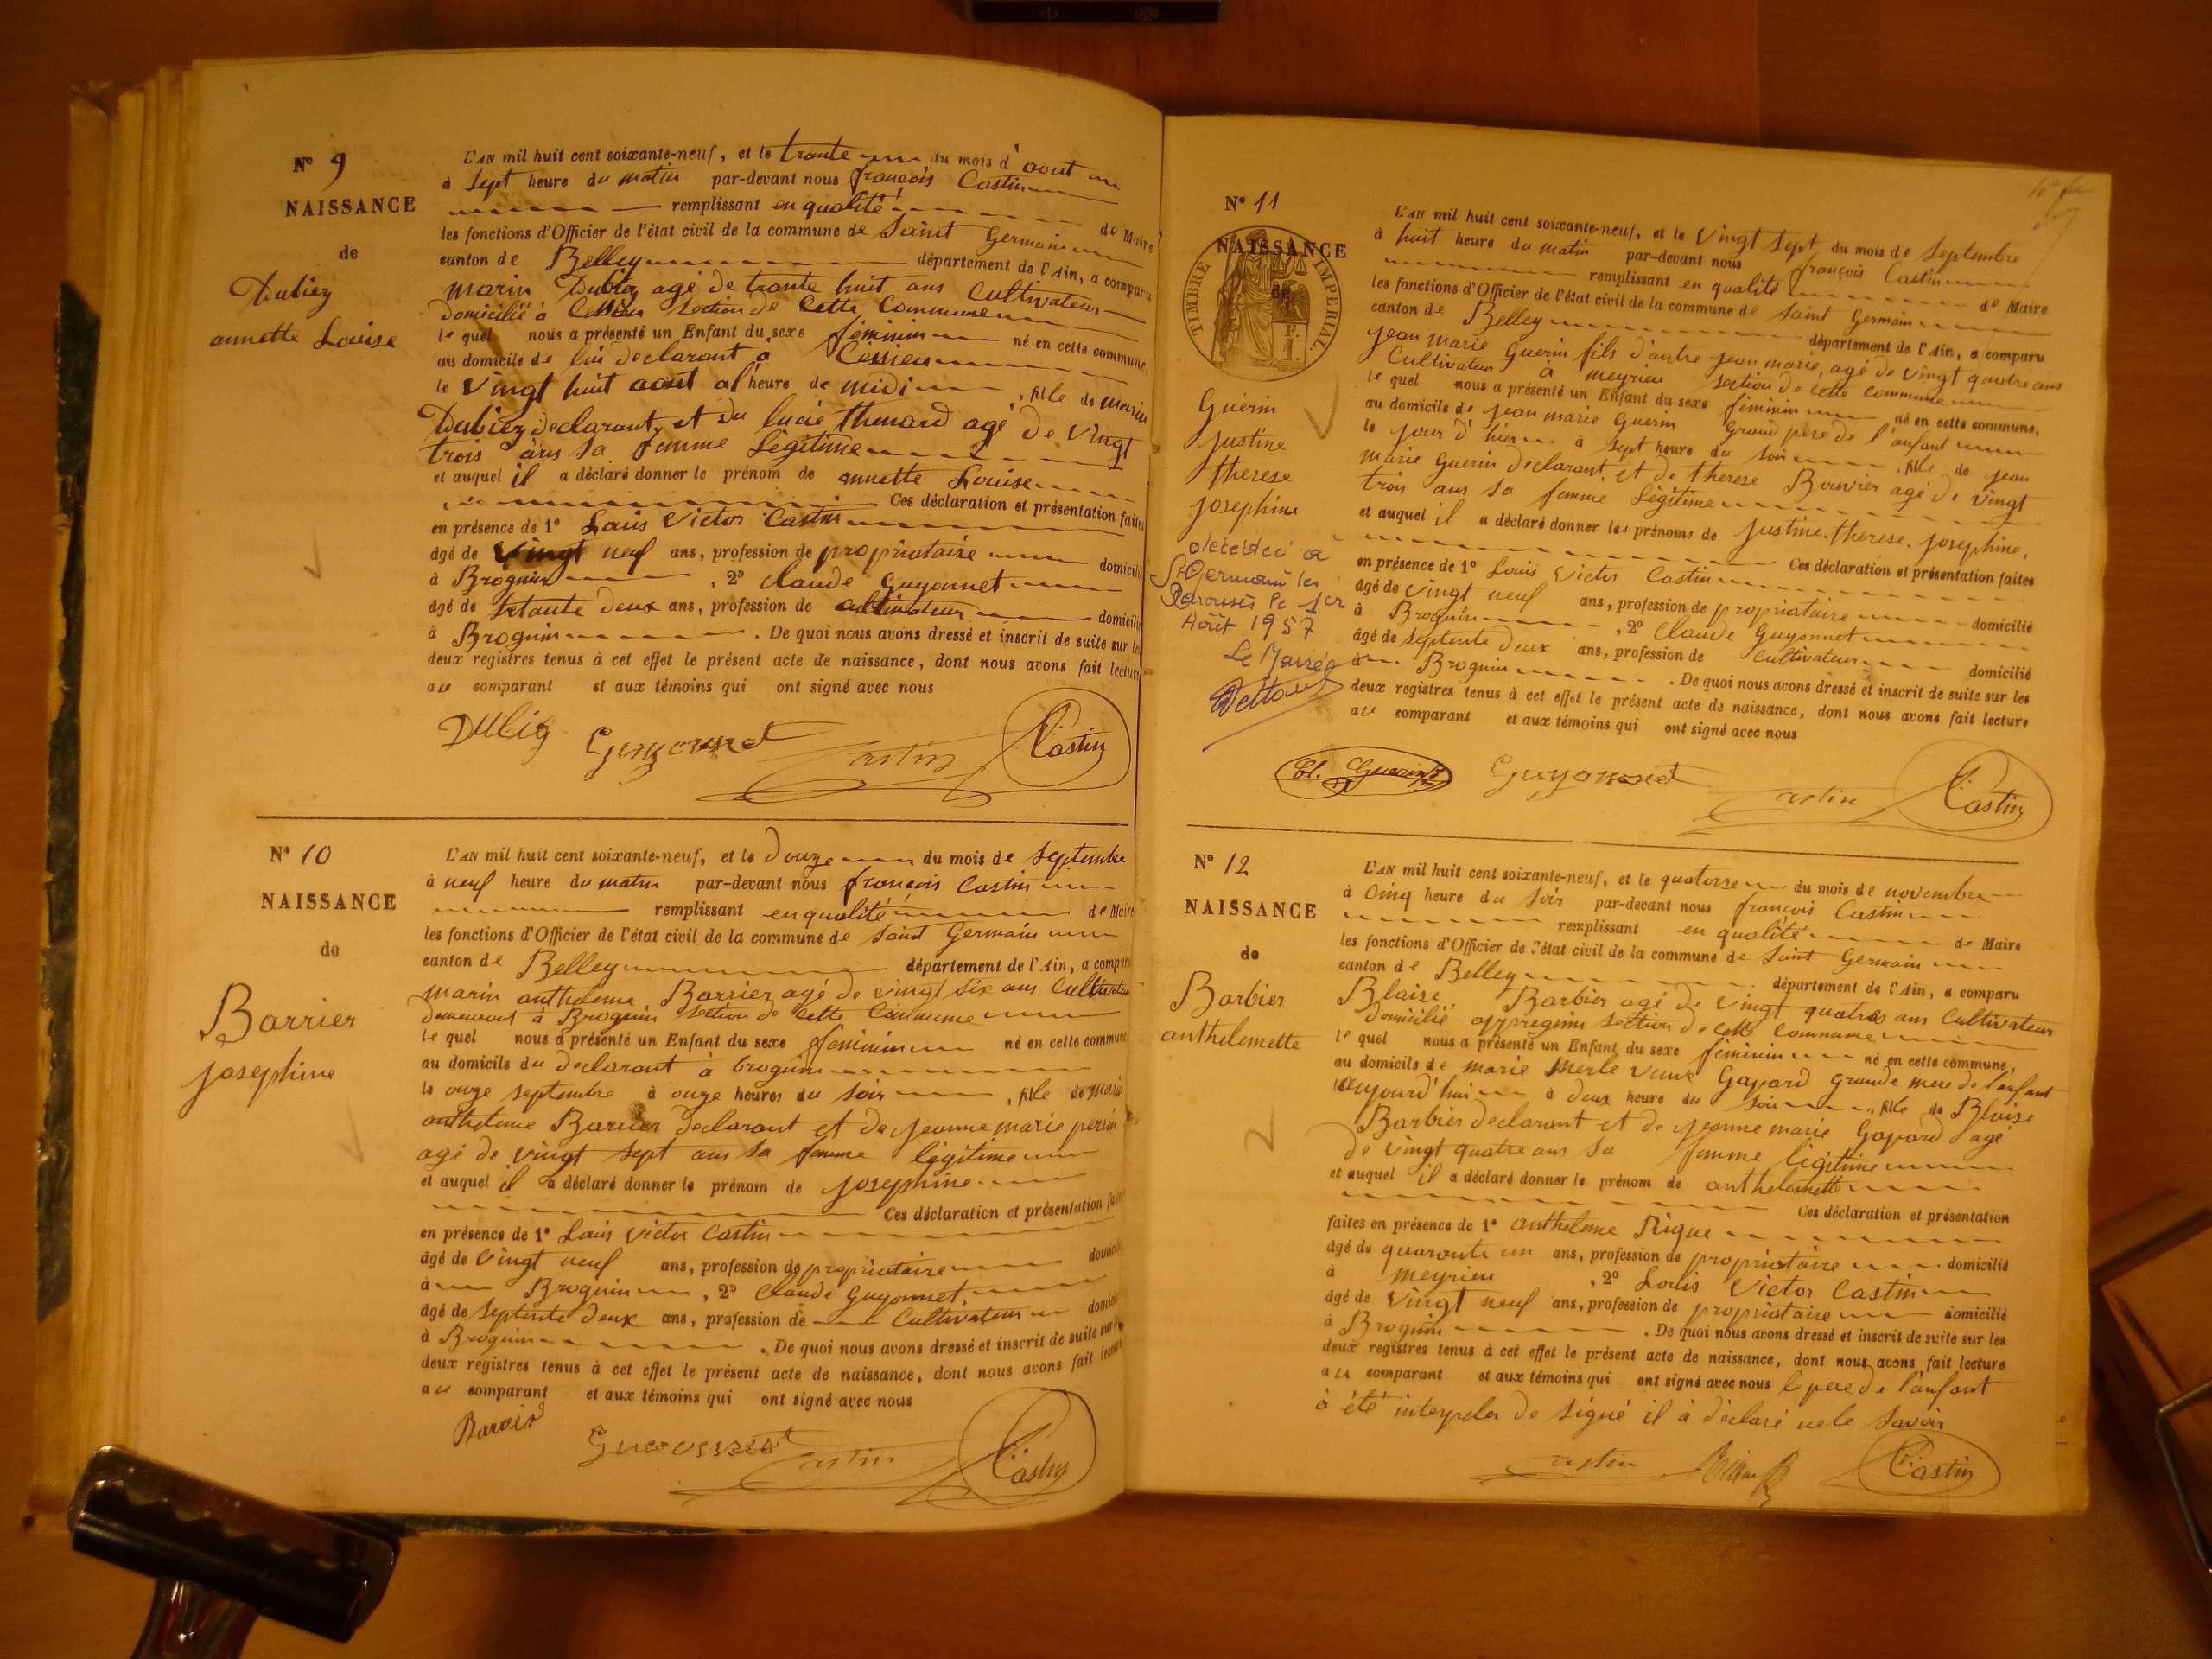 N° 9
NAISSANCE
de
Dubiez
annette Louise
L'AN mil huit cent soixante-neuf, et le trante du mois d'aout
à sept heure du matin par-devant nous françois Castin
remplissant en qualité de Maire
les fonctions d'Officier de l'état civil de la commune de Saint Germain
canton de Belley département de l'Ain, a comparu
marin Dubiez agé de trante huit ans Cultivateur
domicilié à section de Cette Commune
le quel nous a présenté un Enfant du sexe féminin né en cette commune,
au domicile de lui declarant a Cessieu
le vingt huit aout a l'heure de midi , fille de marin
Dubiez declarant, et du lucie thenard agé De vingt
trois ans sa femme Légitime
et auquel il a déclaré donner le prénom de annette Louise
Ces déclaration et présentation faites
en présence de 1° Louis victor Castin
âgé de vingt neuf ans, profession de propriataire domicilié
à Brognin , 2° Claude Guyonnet
âgé de setante deux ans, profession de cultivateur domicilié
à Brognin . De quoi nous avons dressé et inscrit de suite sur les
deux registres tenus à cet effet le présent acte de naissance, dont nous avons fait lecture
au comparant et aux témoins qui ont signé avec nous
Dubiez Guyonnet Castin Castin
N° 10
NAISSANCE
de
Barrier
josephine
L'AN mil huit cent soixante-neuf, et le Douze du mois de septembre
à neuf heure du matin par-devant nous françois Castin
remplissant en qualité de Maire
les fonctions d'Officier de l'état civil de la commune de saint Germain
canton de Belley département de l'Ain, a comparu
marin anthelme Barrier agé de vingt six ans Cultivateur
demeurant à Brognin section de cette Commune
le quel nous a présenté un Enfant du sexe féminin né en cette commune
au domicile du declarant à brognin
le onze septembre à onze heures du soir , fille de marin
anthelme Barrier declarant et de jeanne marie perrin
agé de vingt sept ans sa femme légitime
et auquel il a déclaré donner le prénom de josephine
Ces déclaration et présentation faites
en présence de 1° Louis victor Castin
âgé de vingt neuf ans, profession de propriataire domicilié
à Brognin , 2° Claude Guyonnet
âgé de septente deux ans, profession de Cultivateur domicilié
à Brognin . De quoi nous avons dressé et inscrit de suite sur les
deux registres tenus à cet effet le présent acte de naissance, dont nous avons fait lecture
au comparant et aux témoins qui ont signé avec nous
Guyonnet Castin Castin
N° 11
NAISSANCE
de
TIMBRE IMPERIAL
Guérin
justine
therese
josephine
décédée à
St Germain les
Paroisses le 1er
Août 1957
Le Maire
L'AN mil huit cent soixante-neuf, et le vingt sept du mois de septembre
à huit heure du matin par-devant nous françois Castin
remplissant en qualité de Maire
les fonctions d'Officier de l'état civil de la commune de saint Germain
canton de Belley département de l'Ain, a comparu
jean marie Guerin fils d'autre jean marie, agé de vingt quatre ans
Cultivateur a meyrieu section de cette commune
le quel nous a présenté un Enfant du sexe féminin né en cette commune,
au domicile de jean marie Guerin Grand père de l'enfant
le jour d'hier à sept heure du soir , fille de jean
marie Guerin declarant et de therese Bouvier agé de vingt
trois ans sa femme Légitime
et auquel il a déclaré donner les prénoms de justine. therese. josephine.
Ces déclaration et présentation faites
en présence de 1° Louis victor Castin
âgé de vingt neuf ans, profession de propriataire domicilié
à Brognin , 2° Claude Guyonnet
âgé de septente deux ans, profession de Cultivateur domicilié
à Brognin . De quoi nous avons dressé et inscrit de suite sur les
deux registres tenus à cet effet le présent acte de naissance, dont nous avons fait lecture
au comparant et aux témoins qui ont signé avec nous
Guerin Guyonnet Castin Castin
N° 12
NAISSANCE
de
Barbier
anthelmette
L'AN mil huit cent soixante-neuf, et le quatorse du mois de novembre
à Cinq heure du soir par-devant nous françois Castin
remplissant en qualité de Maire
les fonctions d'Officier de l'état civil de la commune de saint Germain
canton de Belley département de l'Ain, a comparu
Blaise Barbier agé de vingt quatres ans Cultivateur
domicilié appregnin section de cette Commune
le quel nous a présenté un Enfant du sexe féminin né en cette commune,
au domicile de marie merle veuve Gapard grande mere de l'enfant
aujourd'hui à deux heure du soir , fille de Blaise
Barbier declarant et de jeanne marie Gapard agé
de vingt quatre ans sa femme légitime
et auquel il a déclaré donner le prénom de anthelmette
Ces déclaration et présentation
faites en présence de 1° anthelme
âgé de quarante un ans, profession de propriataire domicilié
à meyrieu , 2° Louis Victor Castin
âgé de vingt neuf ans, profession de propriataire domicilié
à Brognin . De quoi nous avons dressé et inscrit de suite sur les
deux registres tenus à cet effet le présent acte de naissance, dont nous avons fait lecture
au comparant et aux témoins qui ont signé avec nous le pere de l'enfant
à été interpeler de signé il à déclaré ne le savoir
Castin Castin